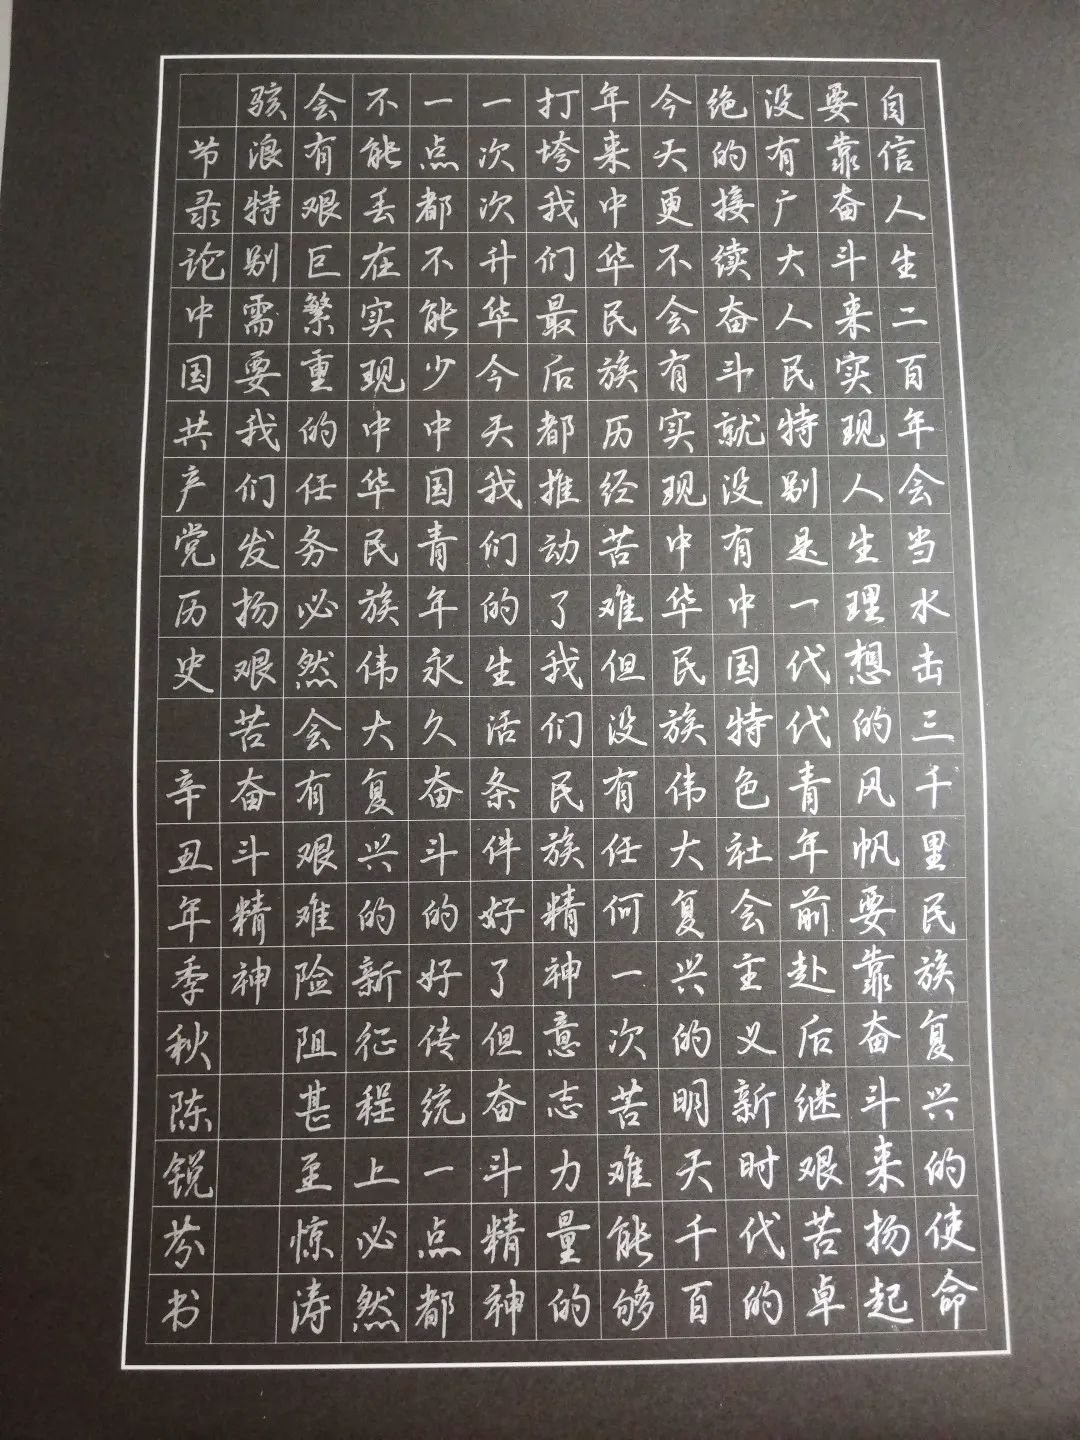 自信人生二百年会当水击三千里民族复兴的使命
要靠奋斗来实现人生理想的风帆要靠奋斗来扬起
没有广大人民特别是一代代青年前赴后继艰苦卓
绝的接续奋斗就没有中国特色社会主义新时代的
今天更不会有实现中华民族伟大复兴的明天千百
年来中华民族历经苦难但没有任何一次苦难能够
打垮我们最后都推动了我们民族精神意志力量的
一次次升华今天我们的生活条件好了但奋斗精神
一点都不能少中国青年永久奋斗的好传统一点都
不能丢在实现中华民族伟大复兴的新征程上必然
会有艰巨繁重的任务必然会有艰难险阻甚至惊涛
骇浪特别需要我们发扬艰苦奋斗精神
节录论中国共产党历史 辛丑年季秋陈锐芬书